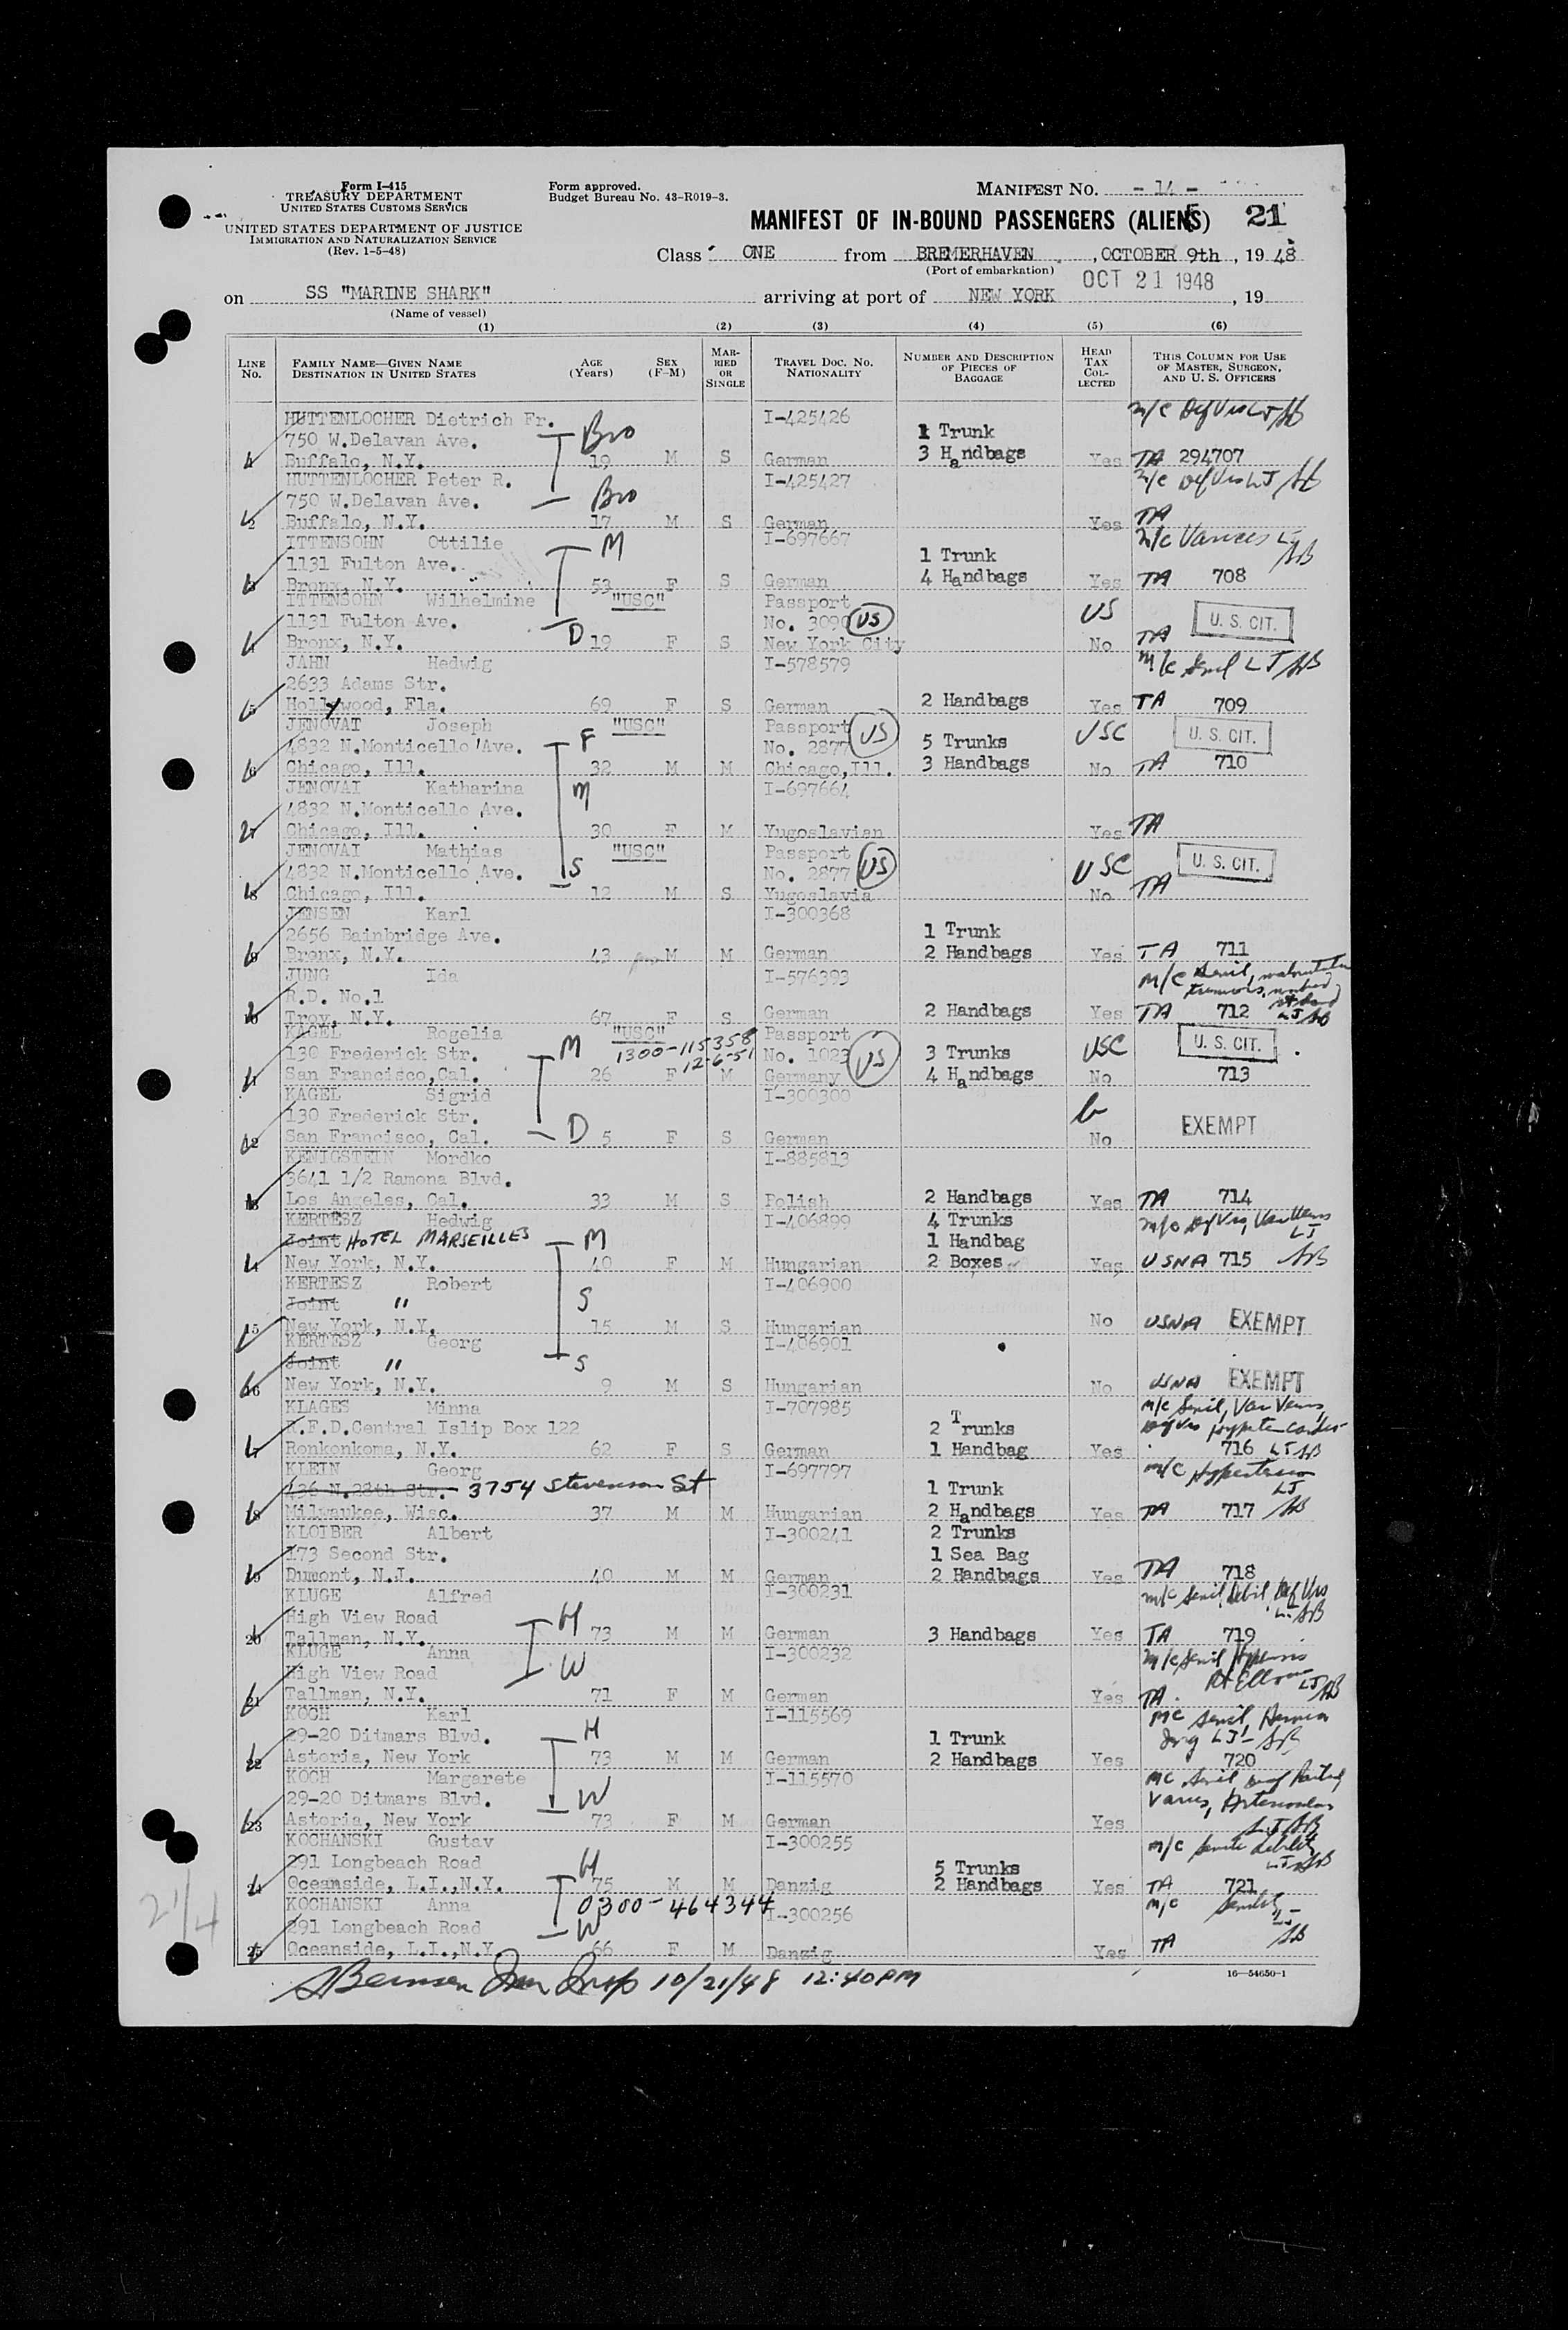 Form I-415
TREASURY DEPARTMENT
UNITED STATES CUSTOMS SERVICE
UNITED STATES DEPARTMENT OF JUSTICE
IMMIGRATION AND NATURALIZATION SERVICE
(Rev. 1-5-48)
Form approved.
Budget Bureau No. 43-R019-3.
MANIFEST NO. - 14 -
MANIFEST OF IN-BOUND PASSENGERS (ALIENS) 21
Class ONE from BREMERHAVEN , OCTOBER 9th , 19 48
(Port of embarkation)
OCT 21 1948
on SS "MARINE SHARK" arriving at port of NEW YORK , 19
(Name of vessel)
(1) (2) (3) (4) (5) (6)
LINE No.
FAMILY NAME—GIVEN NAME DESTINATION IN UNITED STATES
AGE (Years)
SEX (F-M)
MARRIED OR SINGLE
TRAVEL DOC. NO. NATIONALITY
NUMBER AND DESCRIPTION OF PIECES OF BAGGAGE
HEAD TAX COLLECTED
THIS COLUMN FOR USE OF MASTER, SURGEON, AND U. S. OFFICERS
HUTTENLOCHER Dietrich Fr. I-425426 m/c Def Vis LJ
750 W.Delavan Ave. Bro 1 Trunk
Buffalo, N.Y. 19 M S German 3 Handbags Yes TA 294707
HUTTENLOCHER Peter R. I-425427 m/c Def Vis LJ
750 W.Delavan Ave. Bro
2 Buffalo, N.Y. 17 M S German Yes TA
ITTENSOHN Ottilie M I-697667 m/c Varices LJ
1131 Fulton Ave. 1 Trunk
3 Bronx, N.Y. 53 F S German 4 Handbags Yes TA 708
ITTENSOHN Wilhelmine "USC" Passport US U. S. CIT.
1131 Fulton Ave. No. 3090 US
4 Bronx, N.Y. D 19 F S New York City No TA
JAHN Hedwig I-578579 m/c Senil LJ
2633 Adams Str.
5 Hollywood, Fla. 69 F S German 2 Handbags Yes TA 709
JENOVAI Joseph "USC" Passport US USC U. S. CIT.
4832 N.Monticello Ave. F No. 2877 5 Trunks
6 Chicago, Ill. 32 M M Chicago,Ill. 3 Handbags No TA 710
JENOVAI Katharina M I-697664
4832 N.Monticello Ave.
7 Chicago, Ill. 30 F M Yugoslavian Yes TA
JENOVAI Mathias "USC" Passport US USC U. S. CIT.
4832 N.Monticello Ave. S No. 2877
8 Chicago, Ill. 12 M S Yugoslavia No TA
JENSEN Karl I-300368
2656 Bainbridge Ave. 1 Trunk
9 Bronx, N.Y. 43 M M German 2 Handbags Yes TA 711
JUNG Ida I-576393 m/c Senil,
R.D. No.1
10 Troy, N.Y. 67 F S German 2 Handbags Yes TA 712 LJ
KAGEL Rogelia "USC" Passport US USC U. S. CIT.
130 Frederick Str. M 1300-115358 No. 1023 3 Trunks
12-6-51
San Francisco,Cal. 26 F M Germany 4 Handbags No 713
KAGEL Sigrid I-300300
130 Frederick Str. EXEMPT
12 San Francisco, Cal. D 5 F S German No
KENIGSTEIN Mordko I-885813
3641 1/2 Ramona Blvd.
13 Los Angeles, Cal. 33 M S Polish 2 Handbags Yes TA 714
KERTESZ Hedwig I-406899 4 Trunks m/c Def Vis,
Joint HOTEL MARSEILLES M 1 Handbag LJ
New York, N.Y. 40 F M Hungarian 2 Boxes Yes USNA 715
KERTESZ Robert I-406900
Joint " S
15 New York, N.Y. 15 M S Hungarian No USNA EXEMPT
KERTESZ Georg I-406901
Joint " S
16 New York, N.Y. 9 M S Hungarian No USNA EXEMPT
KLAGES Minna I-707985 m/c Senil, Var Veins,
R.F.D.Central Islip Box 122 2 Trunks
Ronkonkoma, N.Y. 62 F S German 1 Handbag Yes 716 LJ
KLEIN Georg I-697797 m/c Hypertension
436 N.28th Str. 3754 Stevenson St 1 Trunk LJ
18 Milwaukee, Wisc. 37 M M Hungarian 2 Handbags Yes TA 717
KLOIBER Albert I-300241 2 Trunks
173 Second Str. 1 Sea Bag
19 Dumont, N.J. 40 M M German 2 Handbags Yes TA 718
KLUGE Alfred I-300231 m/c Senil, Debil, Def Vis
High View Road H
20 Tallman, N.Y. 73 M M German 3 Handbags Yes TA 719
KLUGE Anna I-300232 m/c Senil
High View Road W LJ
21 Tallman, N.Y. 71 F M German Yes TA
KOCH Karl I-115569 mc Senil, Hernia
29-20 Ditmars Blvd. H 1 Trunk Ing LJ
22 Astoria, New York 73 M M German 2 Handbags Yes 720
KOCH Margarete I-115570 mc Senil,
29-20 Ditmars Blvd. W
23 Astoria, New York 73 F M German Yes LJ
KOCHANSKI Gustav I-300255 m/c Senile debility
291 Longbeach Road H 5 Trunks
24 Oceanside, L.I.,N.Y. 75 M M Danzig 2 Handbags Yes TA 721
KOCHANSKI Anna 0300-464344 I-300256 m/c Senility
291 Longbeach Road W
25 Oceanside, L.I.,N.Y. 66 F M Danzig Yes TA
10/21/48 12:40PM
16—54650-1
21/4